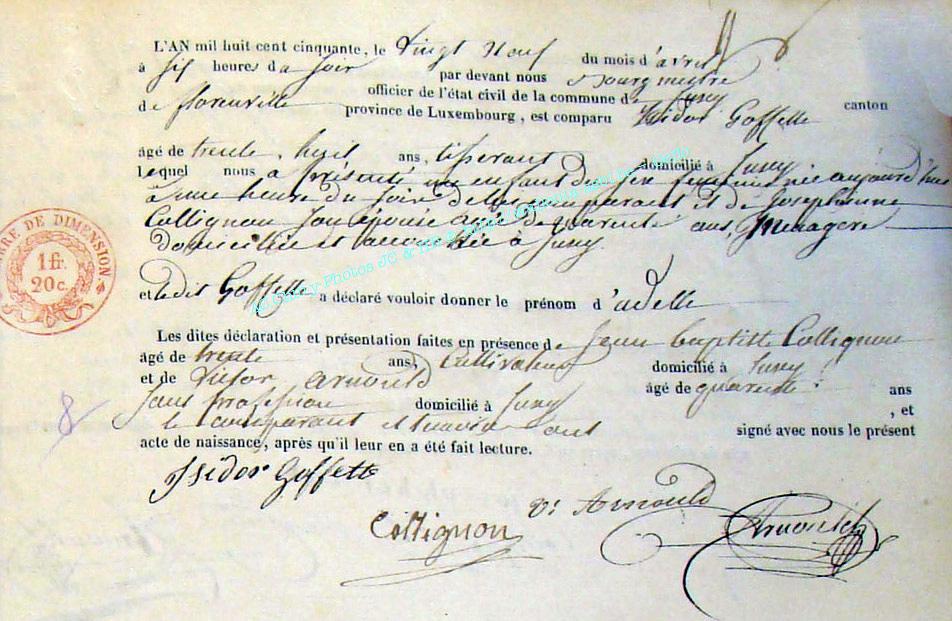 L'AN mil huit cent cinquante, le vingt neuf du mois d'avril
à six heures du soir par devant nous Bourgmestre
officier de l'état civil de la commune de
de florenville province de Luxembourg, est comparu Isidor Goffette canton
âgé de trente huit ans, tisserant domicilié à
lequel nous a présenté un enfant du sexe feminin née aujourd'hui
à une heure du soir de lui comparant et de Josephinne
Collignon son épouse agée de quarente ans, Menagère
domiciliée et accouchée à
et ledit Goffette a déclaré vouloir donner le prénom d'adelle
Les dites déclaration et présentation faites en présence de Jean baptiste Collignon
âgé de trente ans, Cultivateur domicilié à
et de Victor Arnould âgé de quarente ans
sans profession domicilié à , et
le comparant et temoin ont signé avec nous le présent
acte de naissance, après qu'il leur en a été fait lecture.
Isidor Goffette
Collignon
V: Arnould
TIMBRE DE DIMENSION
1 fr.
20 c.
8